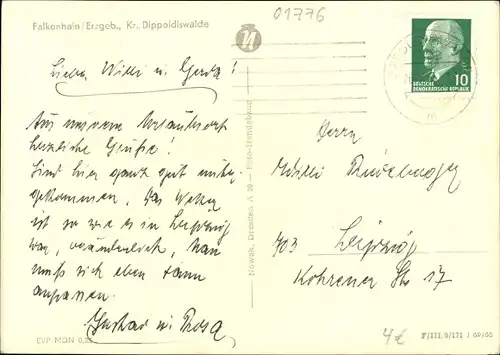 Falkenhain/Erzgeb., Kr. Dippoldiswalde
01776
Lieber Willi u. Gerda!
Aus unserem Urlaubsort
herzliche Grüße!
Sind hier ganz gut unter-
gekommen, das Wetter
ist so wie es in Leipzig
war, veränderlich, Man
muß sich eben dann
anpassen.
Gustav u. Rosa
EVP MDN 0,20
Nowak, Dresden A 20 — Foto-Handabzug
10
DEUTSCHE
DEMOKRATISCHE REPUBLIK
Herrn
Willi
703 Leipzig
Kohrener Str 17
4€
F/III/9/171 J 69/65